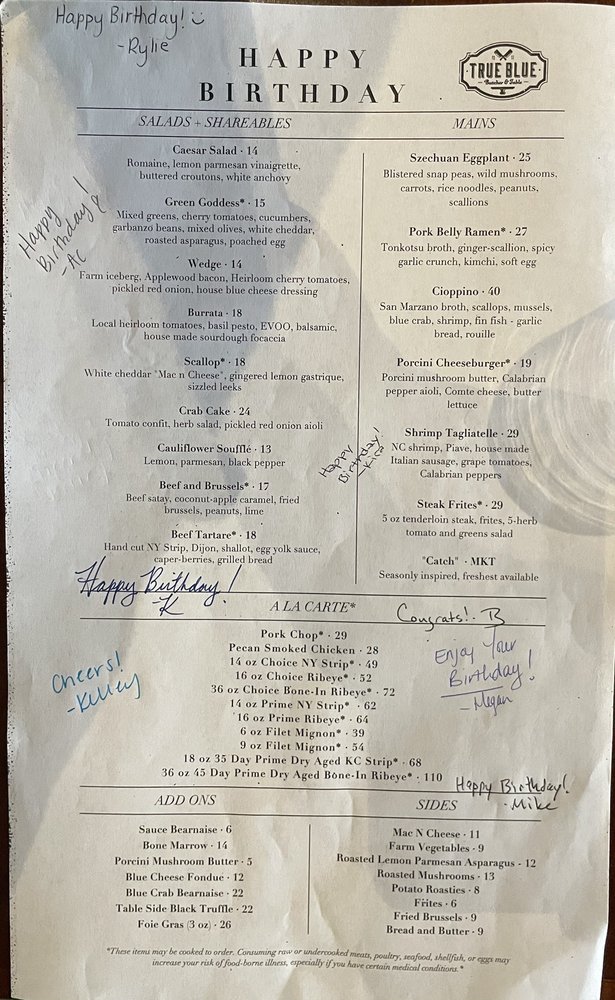 Happy Birthday!
-Rylie
HAPPY
BIRTHDAY
TRUE BLUE
Butcher & Table
SALADS + SHAREABLES
Caesar Salad · 14
Romaine, lemon parmesan vinaigrette,
buttered croutons, white anchovy
Green Goddess* · 15
Mixed greens, cherry tomatoes, cucumbers,
garbanzo beans, mixed olives, white cheddar,
roasted asparagus, poached egg
Happy
Birthday!
-AC
Wedge · 14
Farm iceberg, Applewood bacon, Heirloom cherry tomatoes,
pickled red onion, house blue cheese dressing
Burrata · 18
Local heirloom tomatoes, basil pesto, EVOO, balsamic,
house made sourdough focaccia
Scallop* · 18
White cheddar "Mac n Cheese", gingered lemon gastrique,
sizzled leeks
Crab Cake · 24
Tomato confit, herb salad, pickled red onion aioli
Cauliflower Soufflé · 13
Lemon, parmesan, black pepper
Beef and Brussels* · 17
Beef satay, coconut-apple caramel, fried
brussels, peanuts, lime
Beef Tartare* · 18
Hand cut NY Strip, Dijon, shallot, egg yolk sauce,
caper-berries, grilled bread
MAINS
Szechuan Eggplant · 25
Blistered snap peas, wild mushrooms,
carrots, rice noodles, peanuts,
scallions
Pork Belly Ramen* · 27
Tonkotsu broth, ginger-scallion, spicy
garlic crunch, kimchi, soft egg
Cioppino · 40
San Marzano broth, scallops, mussels,
blue crab, shrimp, fin fish - garlic
bread, rouille
Porcini Cheeseburger* · 19
Porcini mushroom butter, Calabrian
pepper aioli, Comte cheese, butter
lettuce
Happy
Birthday!
Shrimp Tagliatelle · 29
NC shrimp, Piave, house made
Italian sausage, grape tomatoes,
Calabrian peppers
Steak Frites* · 29
5 oz tenderloin steak, frites, 5-herb
tomato and greens salad
"Catch" · MKT
Seasonly inspired, freshest available
Happy Birthday!
K
A LA CARTE*
Congrats! - B
Pork Chop* · 29
Pecan Smoked Chicken · 28
14 oz Choice NY Strip* · 49
16 oz Choice Ribeye* · 52
36 oz Choice Bone-In Ribeye* · 72
14 oz Prime NY Strip* · 62
16 oz Prime Ribeye* · 64
6 oz Filet Mignon* · 39
9 oz Filet Mignon* · 54
18 oz 35 Day Prime Dry Aged KC Strip* · 68
36 oz 45 Day Prime Dry Aged Bone-In Ribeye* · 110
Cheers!
-Kelley
Enjoy Your
Birthday!
-Megan
Happy Birthday!
-Mike
ADD ONS
Sauce Bearnaise · 6
Bone Marrow · 14
Porcini Mushroom Butter · 5
Blue Cheese Fondue · 12
Blue Crab Bearnaise · 22
Table Side Black Truffle · 22
Foie Gras (3 oz) · 26
SIDES
Mac N Cheese · 11
Farm Vegetables · 9
Roasted Lemon Parmesan Asparagus · 12
Roasted Mushrooms · 13
Potato Roasties · 8
Frites · 6
Fried Brussels · 9
Bread and Butter · 9
*These items may be cooked to order. Consuming raw or undercooked meats, poultry, seafood, shellfish, or eggs may
increase your risk of food-borne illness, especially if you have certain medical conditions.*